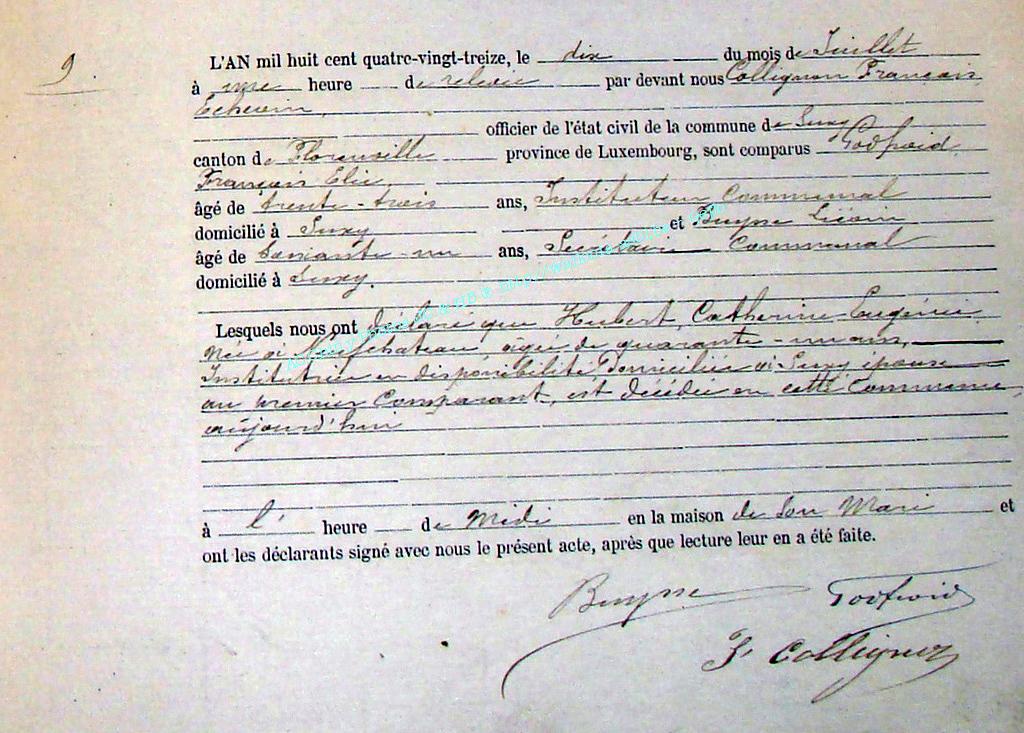 9
L'AN mil huit cent quatre-vingt-treize, le dix du mois de Juillet
à une heure de relevée par devant nous Collignon François
Echevin,
officier de l'état civil de la commune de Suxy
canton de Florenville province de Luxembourg, sont comparus Godfroid
François Elie,
âgé de trente-trois ans, Instituteur Communal
domicilié à Suxy et Buysse
âgé de Soixante-un ans, Secrétaire Communal
domicilié à Suxy.
Lesquels nous ont déclaré que Hubert, Catherine Eugénie,
née à Neufchateau, âgée de quarante-un ans,
Institutrice en disponibilité domiciliée à Suxy épouse
au premier Comparant, est décédée en cette Commune,
aujourd'hui
à l' heure de Midi en la maison de Son Mari et
ont les déclarants signé avec nous le présent acte, après que lecture leur en a été faite.
Buysse Godfroid
F. Collignon